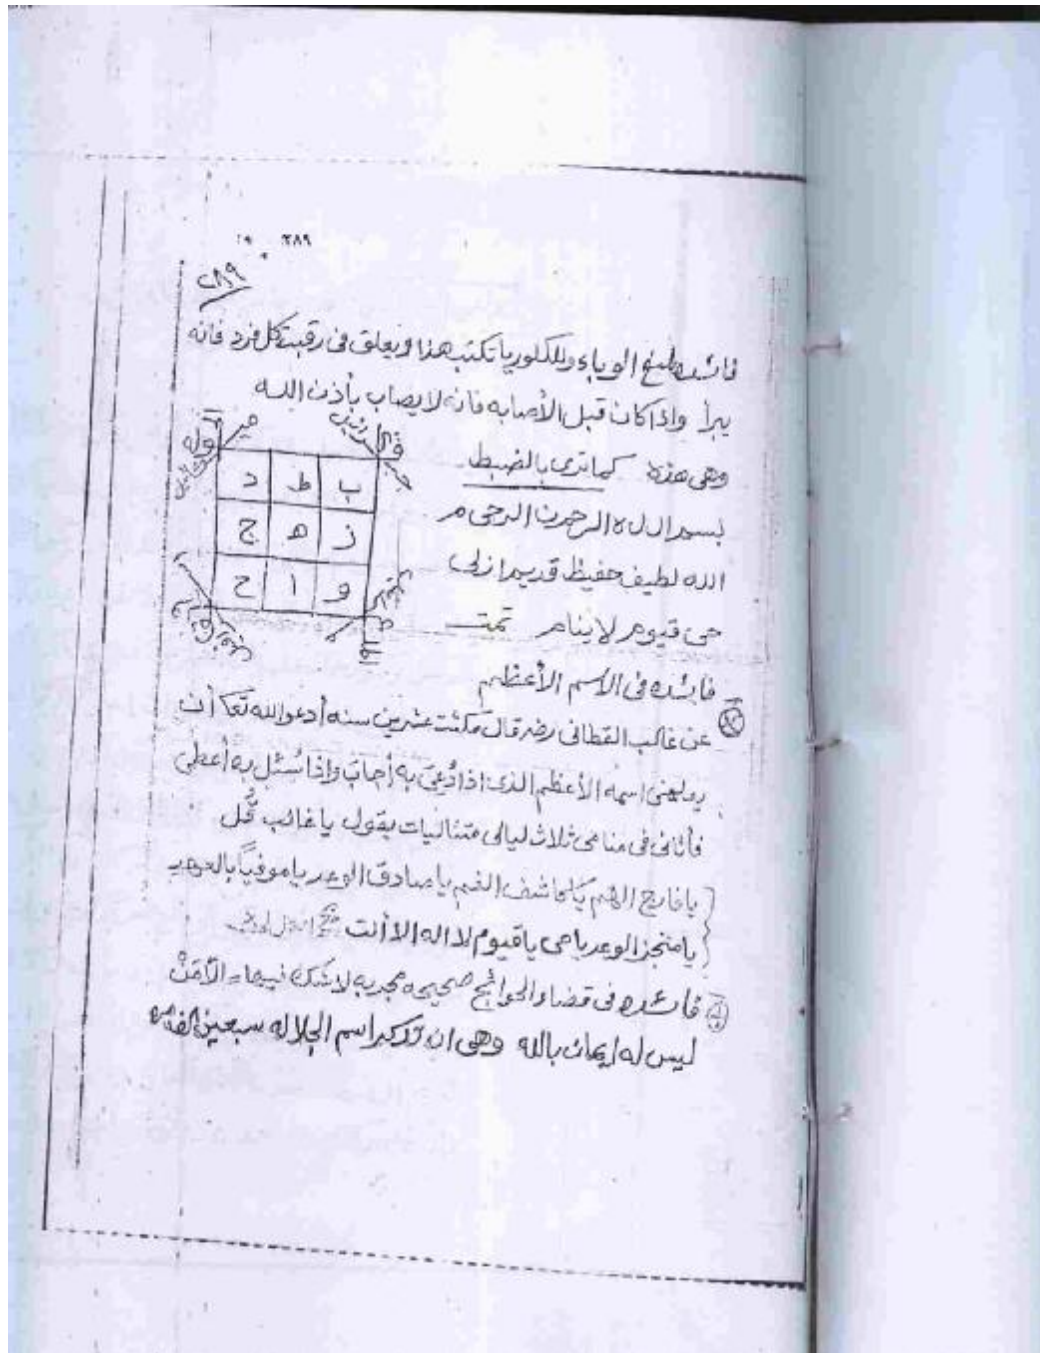 ٢٨٩
٢٨٩
فائده لمنع الوباء وللكلوريا تكتب هذا ويعلق فى رقبت كل فرد فانه
يبرأ واذا كان قبل الأصابه فانه لا يصاب بأذن الله
وهى هذه كما ترى بالضبط
ب ط د
ز ه ج
و ا ح
بسم ال ل ه الرحمن الرحى م
الله لطيف حفيظ قديم ازلى
حى قيوم لا ينام تمت
فائده فى الاسم الأعظم
عن غالب القطانى رضه قال مكثت عشرين سنه أدعو الله تعا أن
يولهنى اسمه الأعظم الذى اذا دُعى به أجاب واذا سُئل به أعطى
فأتانى فى منامى ثلاث ليالى متتاليات يقول يا غالب قُل
يا فارج الهم يا كاشف الغم يا صادق الوعد يا موفياً بالعهد
يا منجز الوعد يا حى يا قيوم لا اله الا أنت
فائده فى قضاء الحوائج صحيحه مجربه لا شك فيها الا مَنْ
ليس له ايمان بالله وهى ان تذكر اسم الجلاله سبعين الف